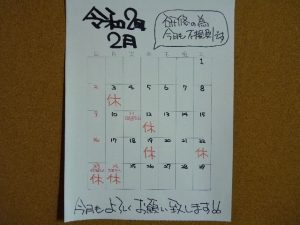 令和2年
2月
研修の為
今月も不規則です
日 月 火 水 木 金 土
1
2 3 4 5 6 7 8
休
9 10 11 12 13 14 15
休
16 17 18 19 20 21 22
休 休
23 24 25 26 27 28 29
休 休
今月もよろしくお願い致します!!